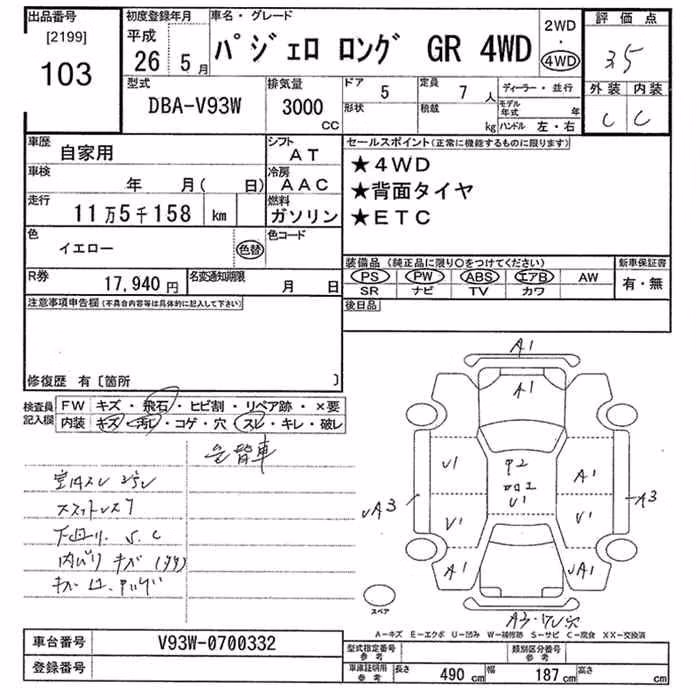 出品番号
[2199]
103
初度登録年月
平成
26年 5月
車名・グレード
パジェロ ロング GR 4WD
2WD
・
4WD
評価点
3.5
外装 内装
C C
型式
DBA-V93W
排気量
3000
CC
ドア 5
形状
定員 7 人
積載 kg
ディーラー・並行
モデル年式 年
ハンドル 左・右
車歴
自家用
シフト
AT
車検
年 月( 日)
冷房
AAC
走行
11万5千158 km
燃料
ガソリン
色
イエロー
色替
色コード
R券
17,940 円
名変通知期限
月 日
セールスポイント(正常に機能するものに限ります)
★4WD
★背面タイヤ
★ETC
装備品(純正品に限り○をつけてください)
PS PW ABS エアB AW
SR ナビ TV カワ
新車保証書
有・無
後日品
注意事項申告欄(不具合内容等は具体的に記入して下さい)
修復歴 有〔箇所 〕
検査員記入欄
FW キズ・飛石・ヒビ割・リペア跡・×要
内装 キズ・汚レ・コゲ・穴・スレ・キレ・破レ
色替車
下回り S.C
A1
A1
U1
A1
U1
U1
U1
A3
A3
A1
A1
スペア
A―キズ E―エクボ U―凹み W―補修跡 S―サビ C―腐食 XX―交換済
車台番号
V93W-0700332
登録番号
型式指定番号
参考
類別区分番号
参考
車庫証明用
参考
長さ 490 cm
幅 187 cm
高さ cm